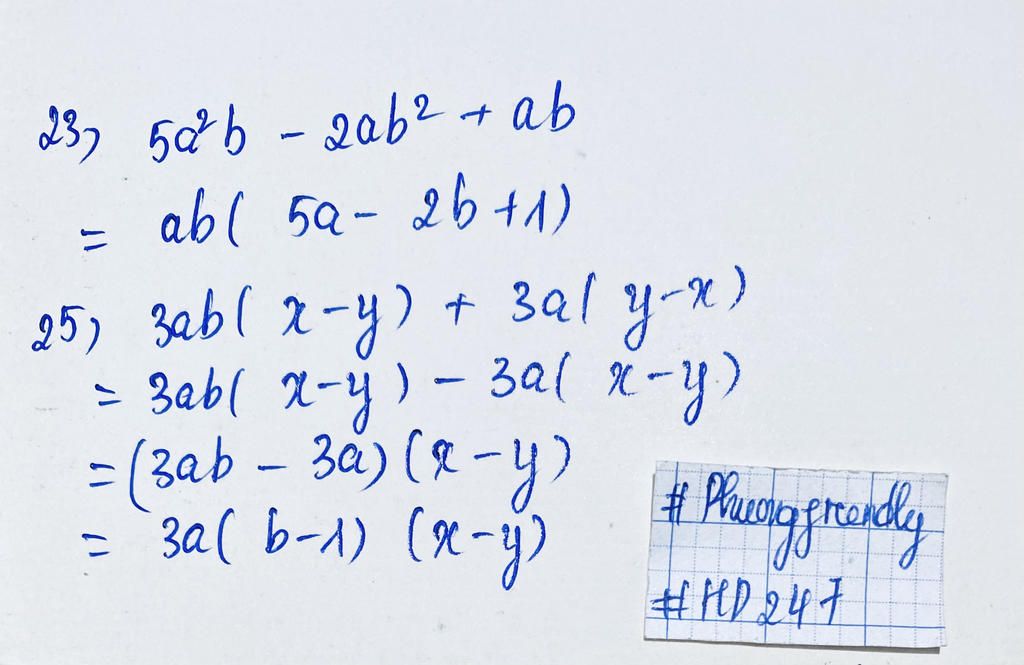 23, 5a²b - 2ab² + ab
= ab( 5a - 2b +1)
25, 3ab( x-y) + 3a( y-x)
= 3ab( x-y) - 3a( x-y)
= (3ab - 3a) (x-y)
= 3a( b-1) (x-y)
# Phuongfreendly
# HD247